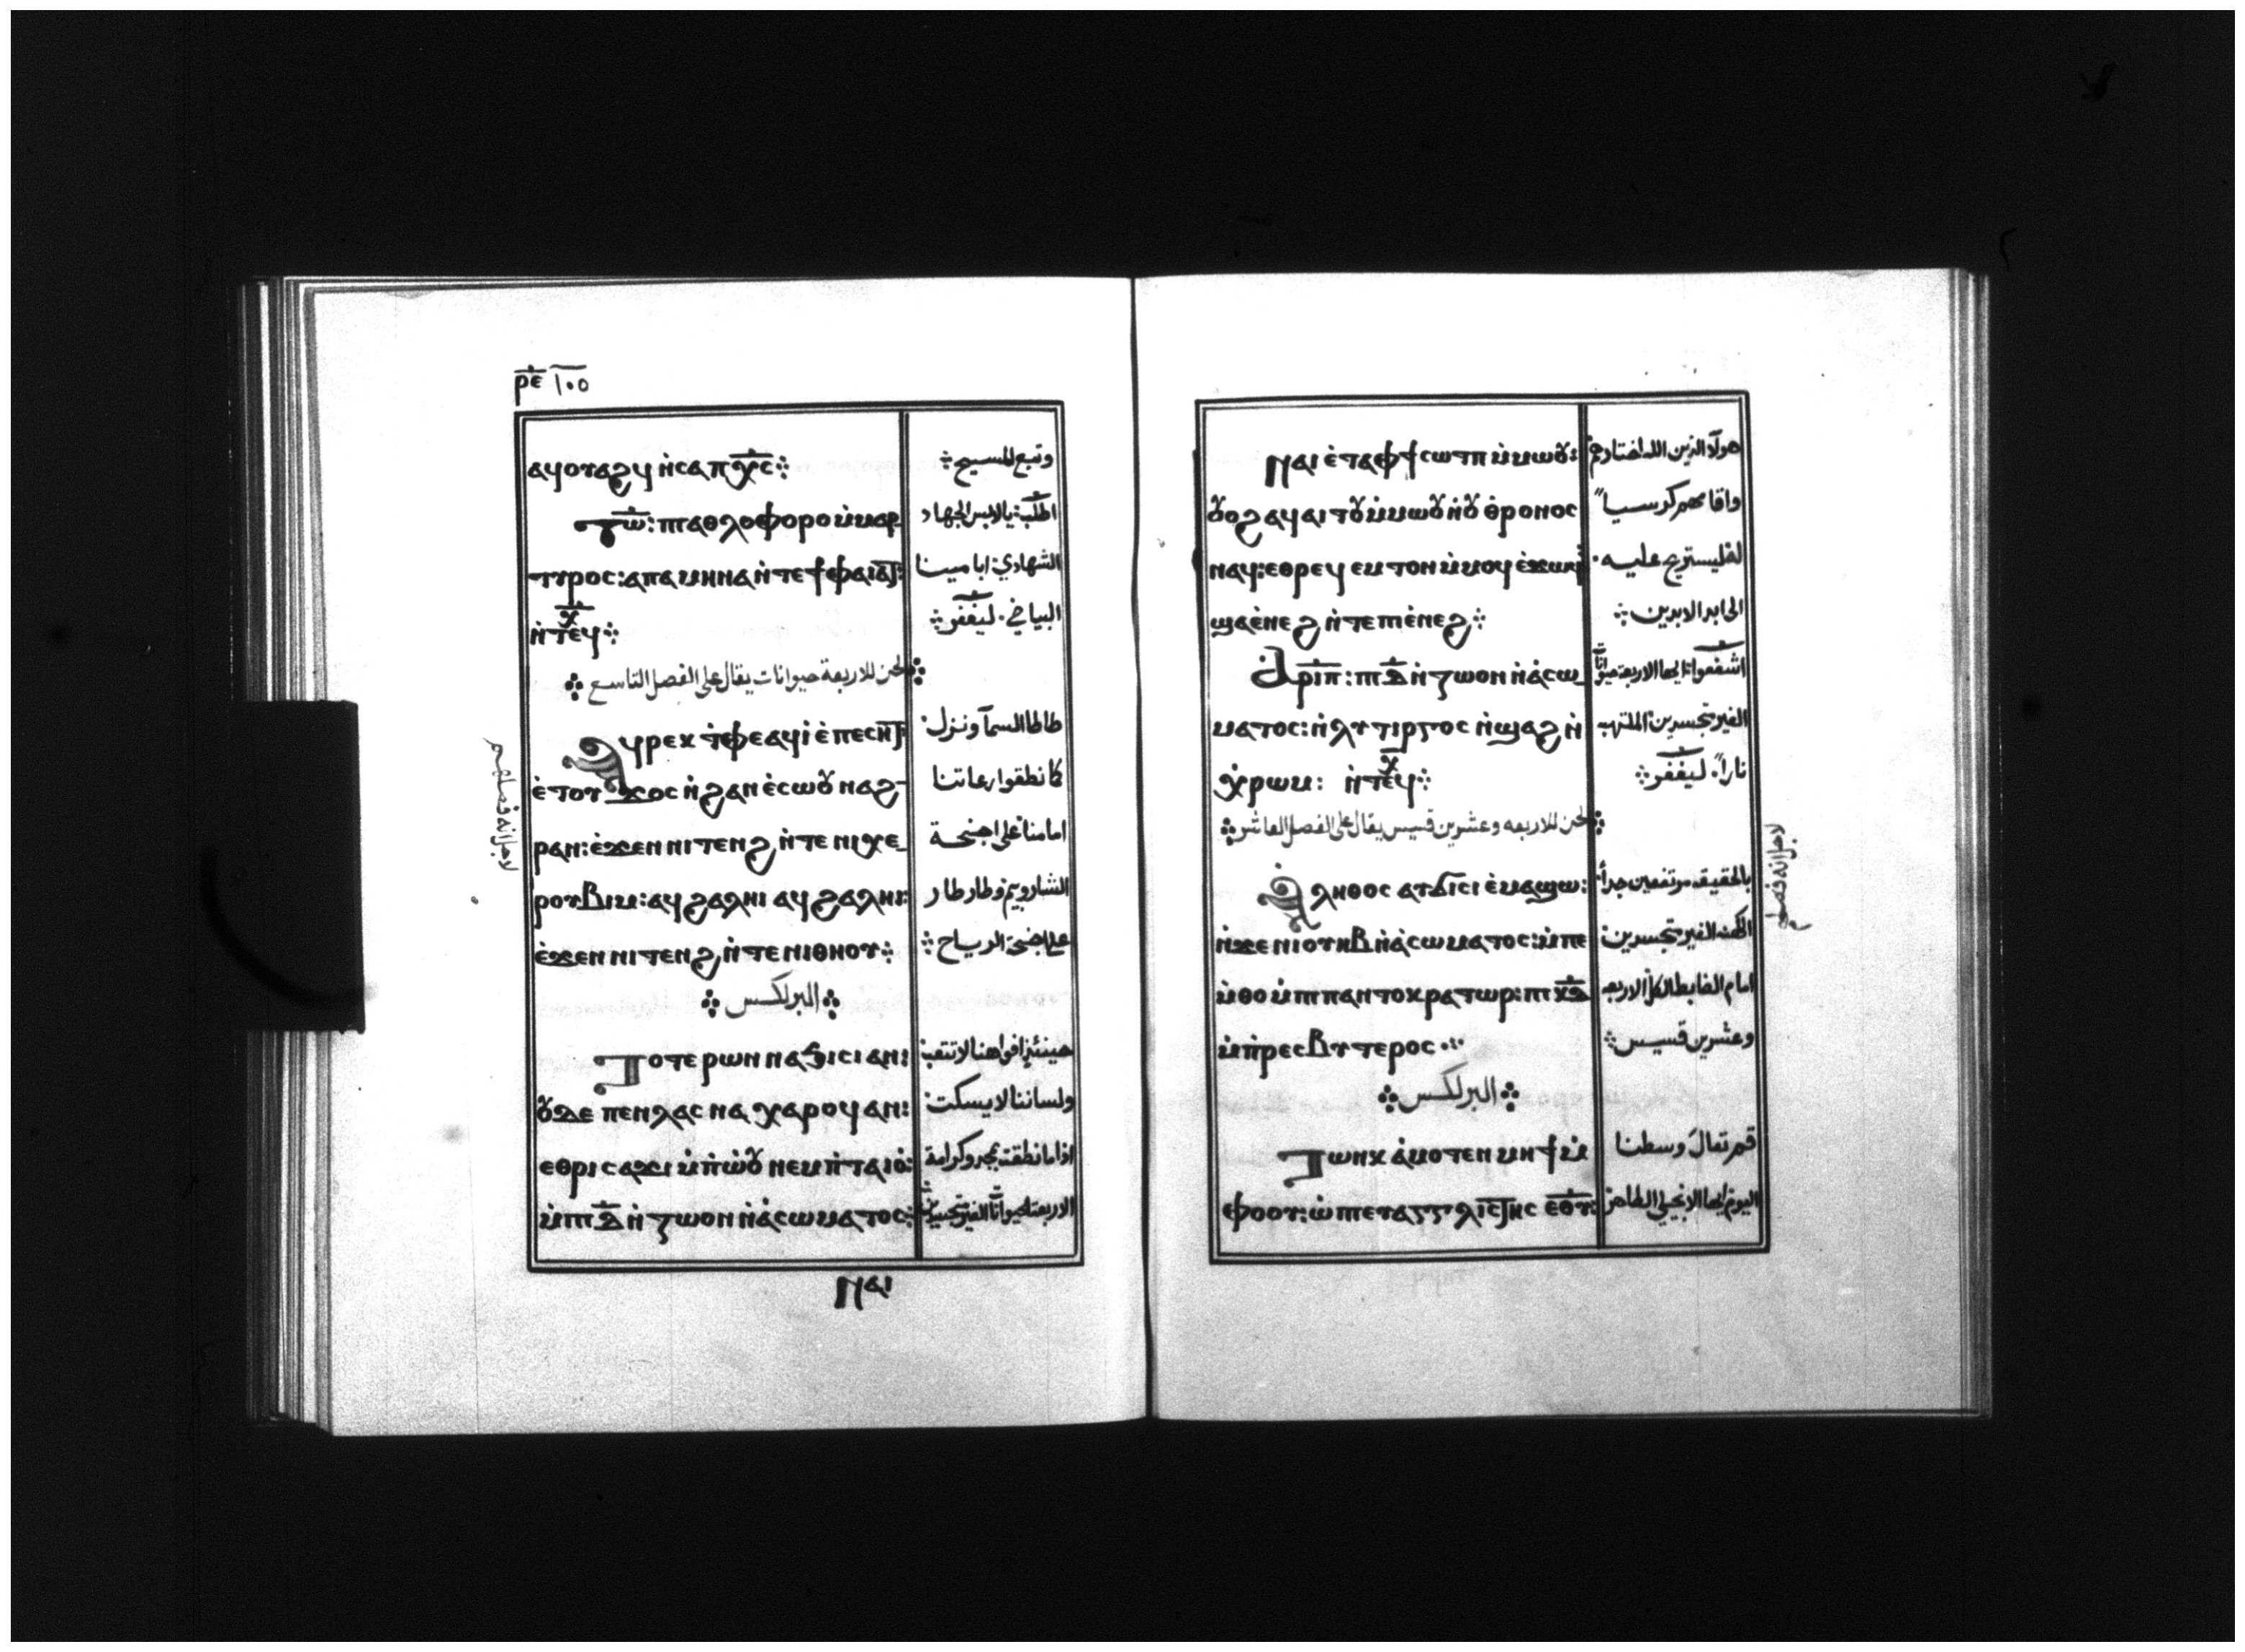 ⲣ̅ⲉ̅ ١٠٥
ⲁϥⲟⲩⲁϩϥ ⲛ̀ⲥⲁ ⲡⲭ̅ⲥ̅ وتبع المسيح
ⲧⲱ̅: ⲡⲓⲁⲑⲗⲟⲫⲟⲣⲟ ⲙ̀ⲙⲁⲣ اطلب: يالابس الجهاد
ⲧⲩⲣⲟⲥ: ⲁⲡⲁ ⲙⲏⲛⲁ ⲛ̀ⲧⲉ ϯⲫⲁⲓⲁⲧ: الشهادي: ابا مينا
ⲛ̀ⲧⲉϥⲭ̅ البياضي. ليغفر
لحن للاربعة حيوانات يقال على الفصل التاسع
ⲁϥⲣⲉⲕ ⲧ̀ⲫⲉ ⲁϥⲓ̀ ⲉ̀ⲡⲉⲥⲏⲧ طاطا السما ونزل:
ⲉ̀ⲧⲟⲩϫⲟⲥ ⲛ̀ϩⲁⲛ ⲉ̀ⲥⲱⲟⲩ ⲛⲁϩ- كا نطقوا رعاتنا
ⲣⲁⲛ: ⲉ̀ϫⲉⲛ ⲛⲓⲧⲉⲛϩ ⲛ̀ⲧⲉ ⲛⲓⲭⲉ- امامنا على اجنحة
ⲣⲟⲩⲃⲓⲙ: ⲁϥϩⲁⲗⲏⲓ ⲁϥϩⲁⲗⲏⲓ: الشاروبيم وطار طار
ⲉ̀ϫⲉⲛ ⲛⲓⲧⲉⲛϩ ⲛ̀ⲧⲉ ⲛⲓⲑⲏⲟⲩ على اجنحة الرياح
البرلكس
ⲧⲟⲧⲉ ⲣⲱⲛ ⲛⲁϧⲓⲥⲓ ⲁⲛ: حينئذ افواهنا لا تتعب:
ⲟⲩⲇⲉ ⲡⲉⲛⲗⲁⲥ ⲛⲁ ⲭⲁⲣⲟϥ ⲁⲛ: ولساننا لا يسكت:
ⲉⲑⲣⲓⲥⲁϫⲓ ⲙ̀ⲡ̀ⲱⲟⲩ ⲛⲉⲙ ⲡ̀ⲧⲁⲓⲟ̀: اذا ما نطقت بمجد وكرامة
ⲙ̀ⲡⲓⲇ̅ ⲛ̀ⲍⲱⲟⲛ ⲛ̀ⲁⲥⲱⲙⲁⲧⲟⲥ: الاربعة الحيوانات الغير متجسدين
ⲛⲁⲓ
لاجل انه فصلهم
ⲛⲁⲓ ⲉ̀ⲧⲁⲫϯ ⲥⲱⲧⲡ ⲙ̀ⲙⲱⲟⲩ: هولآء الذين الله اختارهم
ⲟⲩⲟϩ ⲁϥⲁⲓⲧⲟⲩ ⲙ̀ⲙⲱⲟⲩ ⲛ̀ⲟⲩ ⲑ̀ⲣⲟⲛⲟⲥ واقامهم كرسيا
ⲛⲁϥ: ⲉⲑⲣⲉϥ ⲉⲙⲧⲟⲛ ⲙ̀ⲙⲟϥ ⲉ̀ϫⲱϥ له ليستريح عليه.
ϣⲁⲉ̀ⲛⲉϩ ⲛ̀ⲧⲉ ⲡⲓⲉ̀ⲛⲉϩ الى ابد الابدين
ⲁⲣⲓⲡ̅: ⲡⲓⲇ̅ ⲛ̀ⲍⲱⲟⲛ ⲛ̀ⲁⲥⲱ- اشفعوا: ايها الاربعة حيوانات
ⲙⲁⲧⲟⲥ: ⲛ̀ⲗⲩⲧⲓⲣⲅⲟⲥ ⲛ̀ϣⲁϩ ⲛ̀ الغير متجسدين الملتهبة
ⲭ̀ⲣⲱⲙ: ⲛ̀ⲧⲉϥⲭ̅ نارا: ليغفر
لحن للاربعه وعشرين قسيس يقال على الفصل العاشر
ⲁⲗⲏⲑⲟⲥ ⲁⲩϭⲓⲥⲓ ⲉ̀ⲙⲁϣⲱ: بالحقيقه مرتفعين جدا:
ⲛ̀ϫⲉ ⲛⲓⲟⲩⲏⲃ ⲛ̀ⲁⲥⲱⲙⲁⲧⲟⲥ: ⲙ̀ⲡⲉ الكهنه الغير متجسدين:
ⲙ̀ⲑⲟ ⲙ̀ⲡⲓⲡⲁⲛⲧⲟⲕⲣⲁⲧⲱⲣ: ⲡⲓⲕ̅ⲇ̅ امام الضابط الكل الاربعه
ⲙ̀ⲡ̀ⲣⲉⲥⲃⲩⲧⲉⲣⲟⲥ وعشرين قسيس
البرلكس
ⲧⲱⲛⲕ ⲁⲙⲟ ⲧⲉⲛⲙⲏϯ ⲙ̀ قم تعال وسطنا
ⲫⲟⲟⲩ: ⲱ̀ ⲡⲓⲉⲩⲁⲅⲅⲉⲗⲓⲥⲧⲏⲥ ⲉⲑⲩ̅: اليوم ايها الانجيلي الطاهر
لاجل انه فصلهم